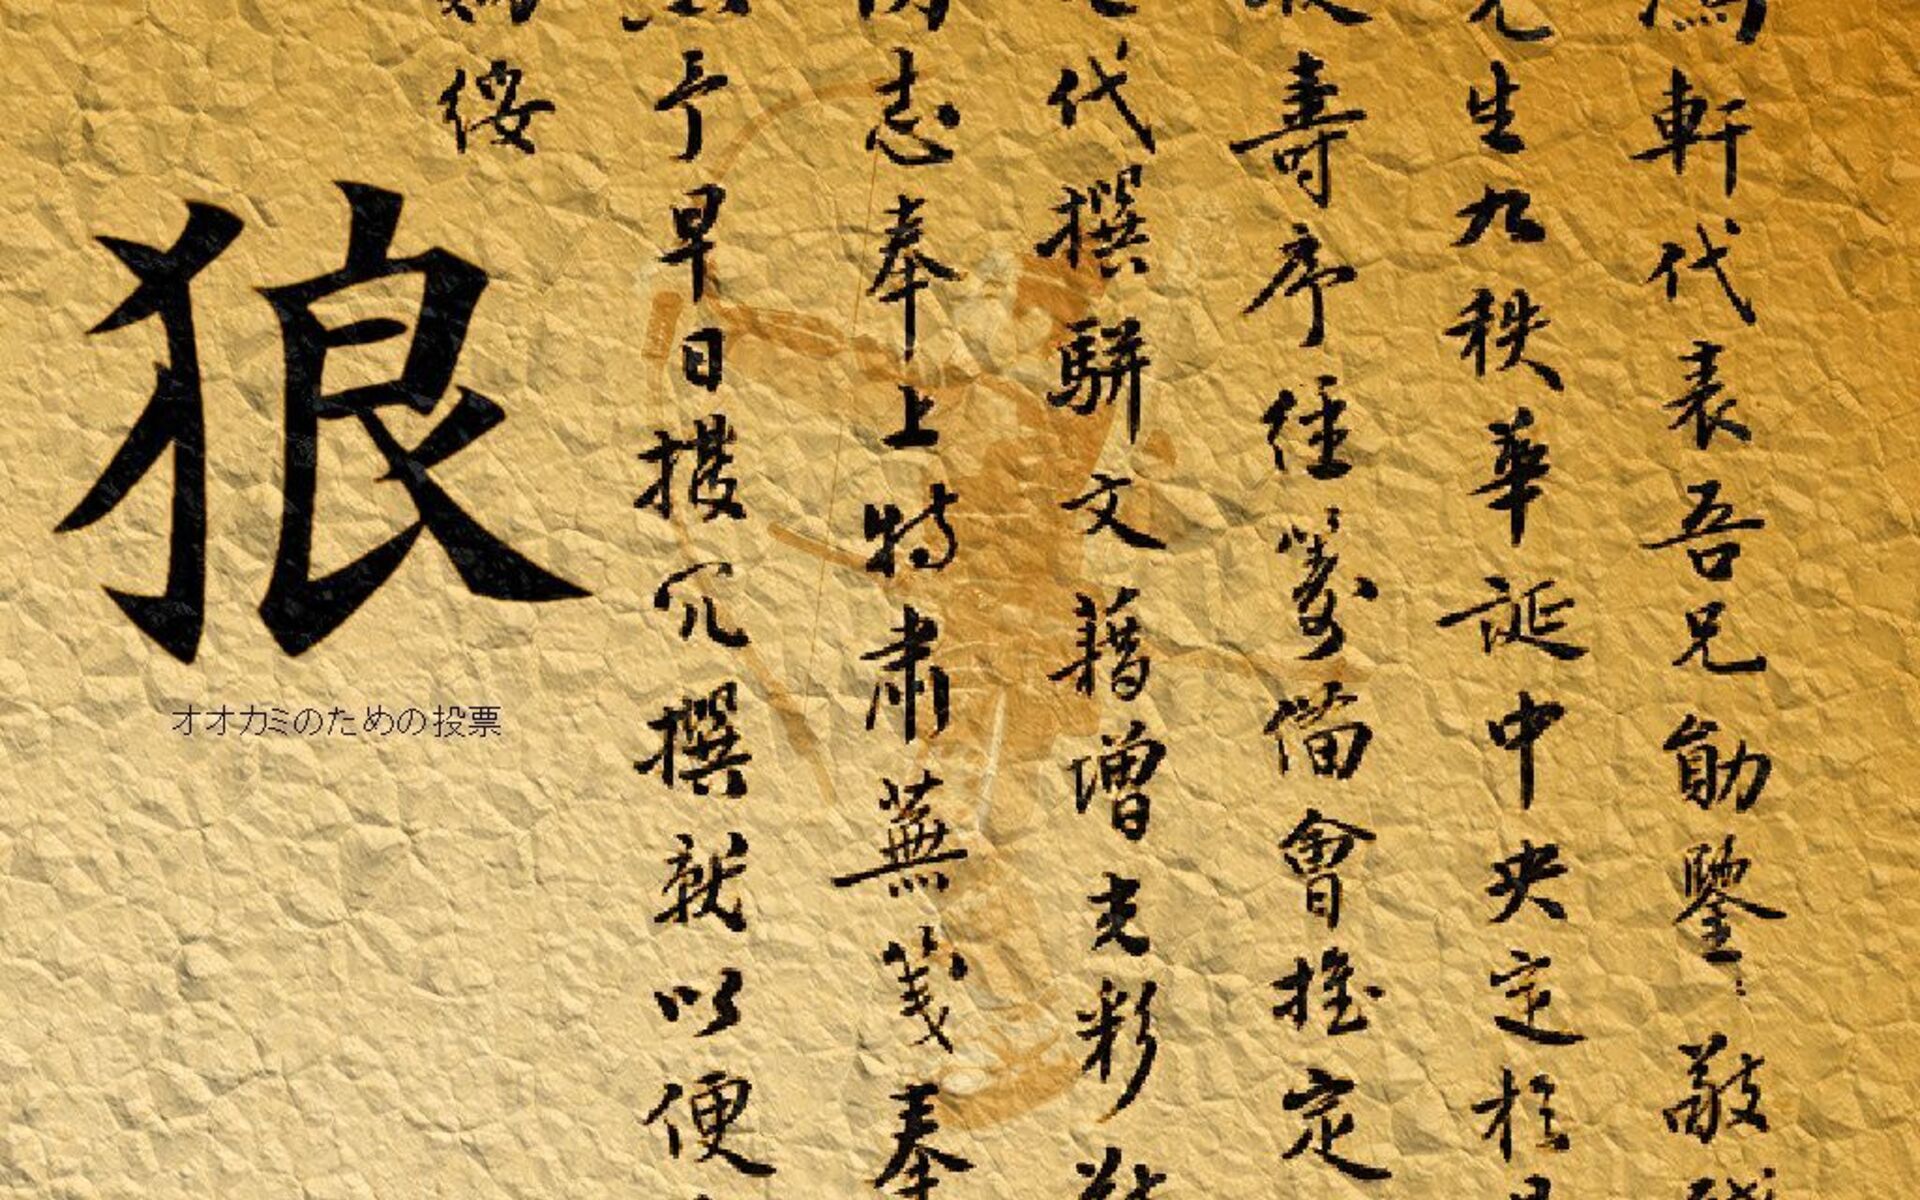 軒代表吾兄勛鑒：敬
生九秩華誕中央定於
壽序經籌備會推定
代撰駢文藉增光彩
志奉上特肅蕪箋奉
予早日撥冗撰就以便
綏
狼
オオカミのための投票